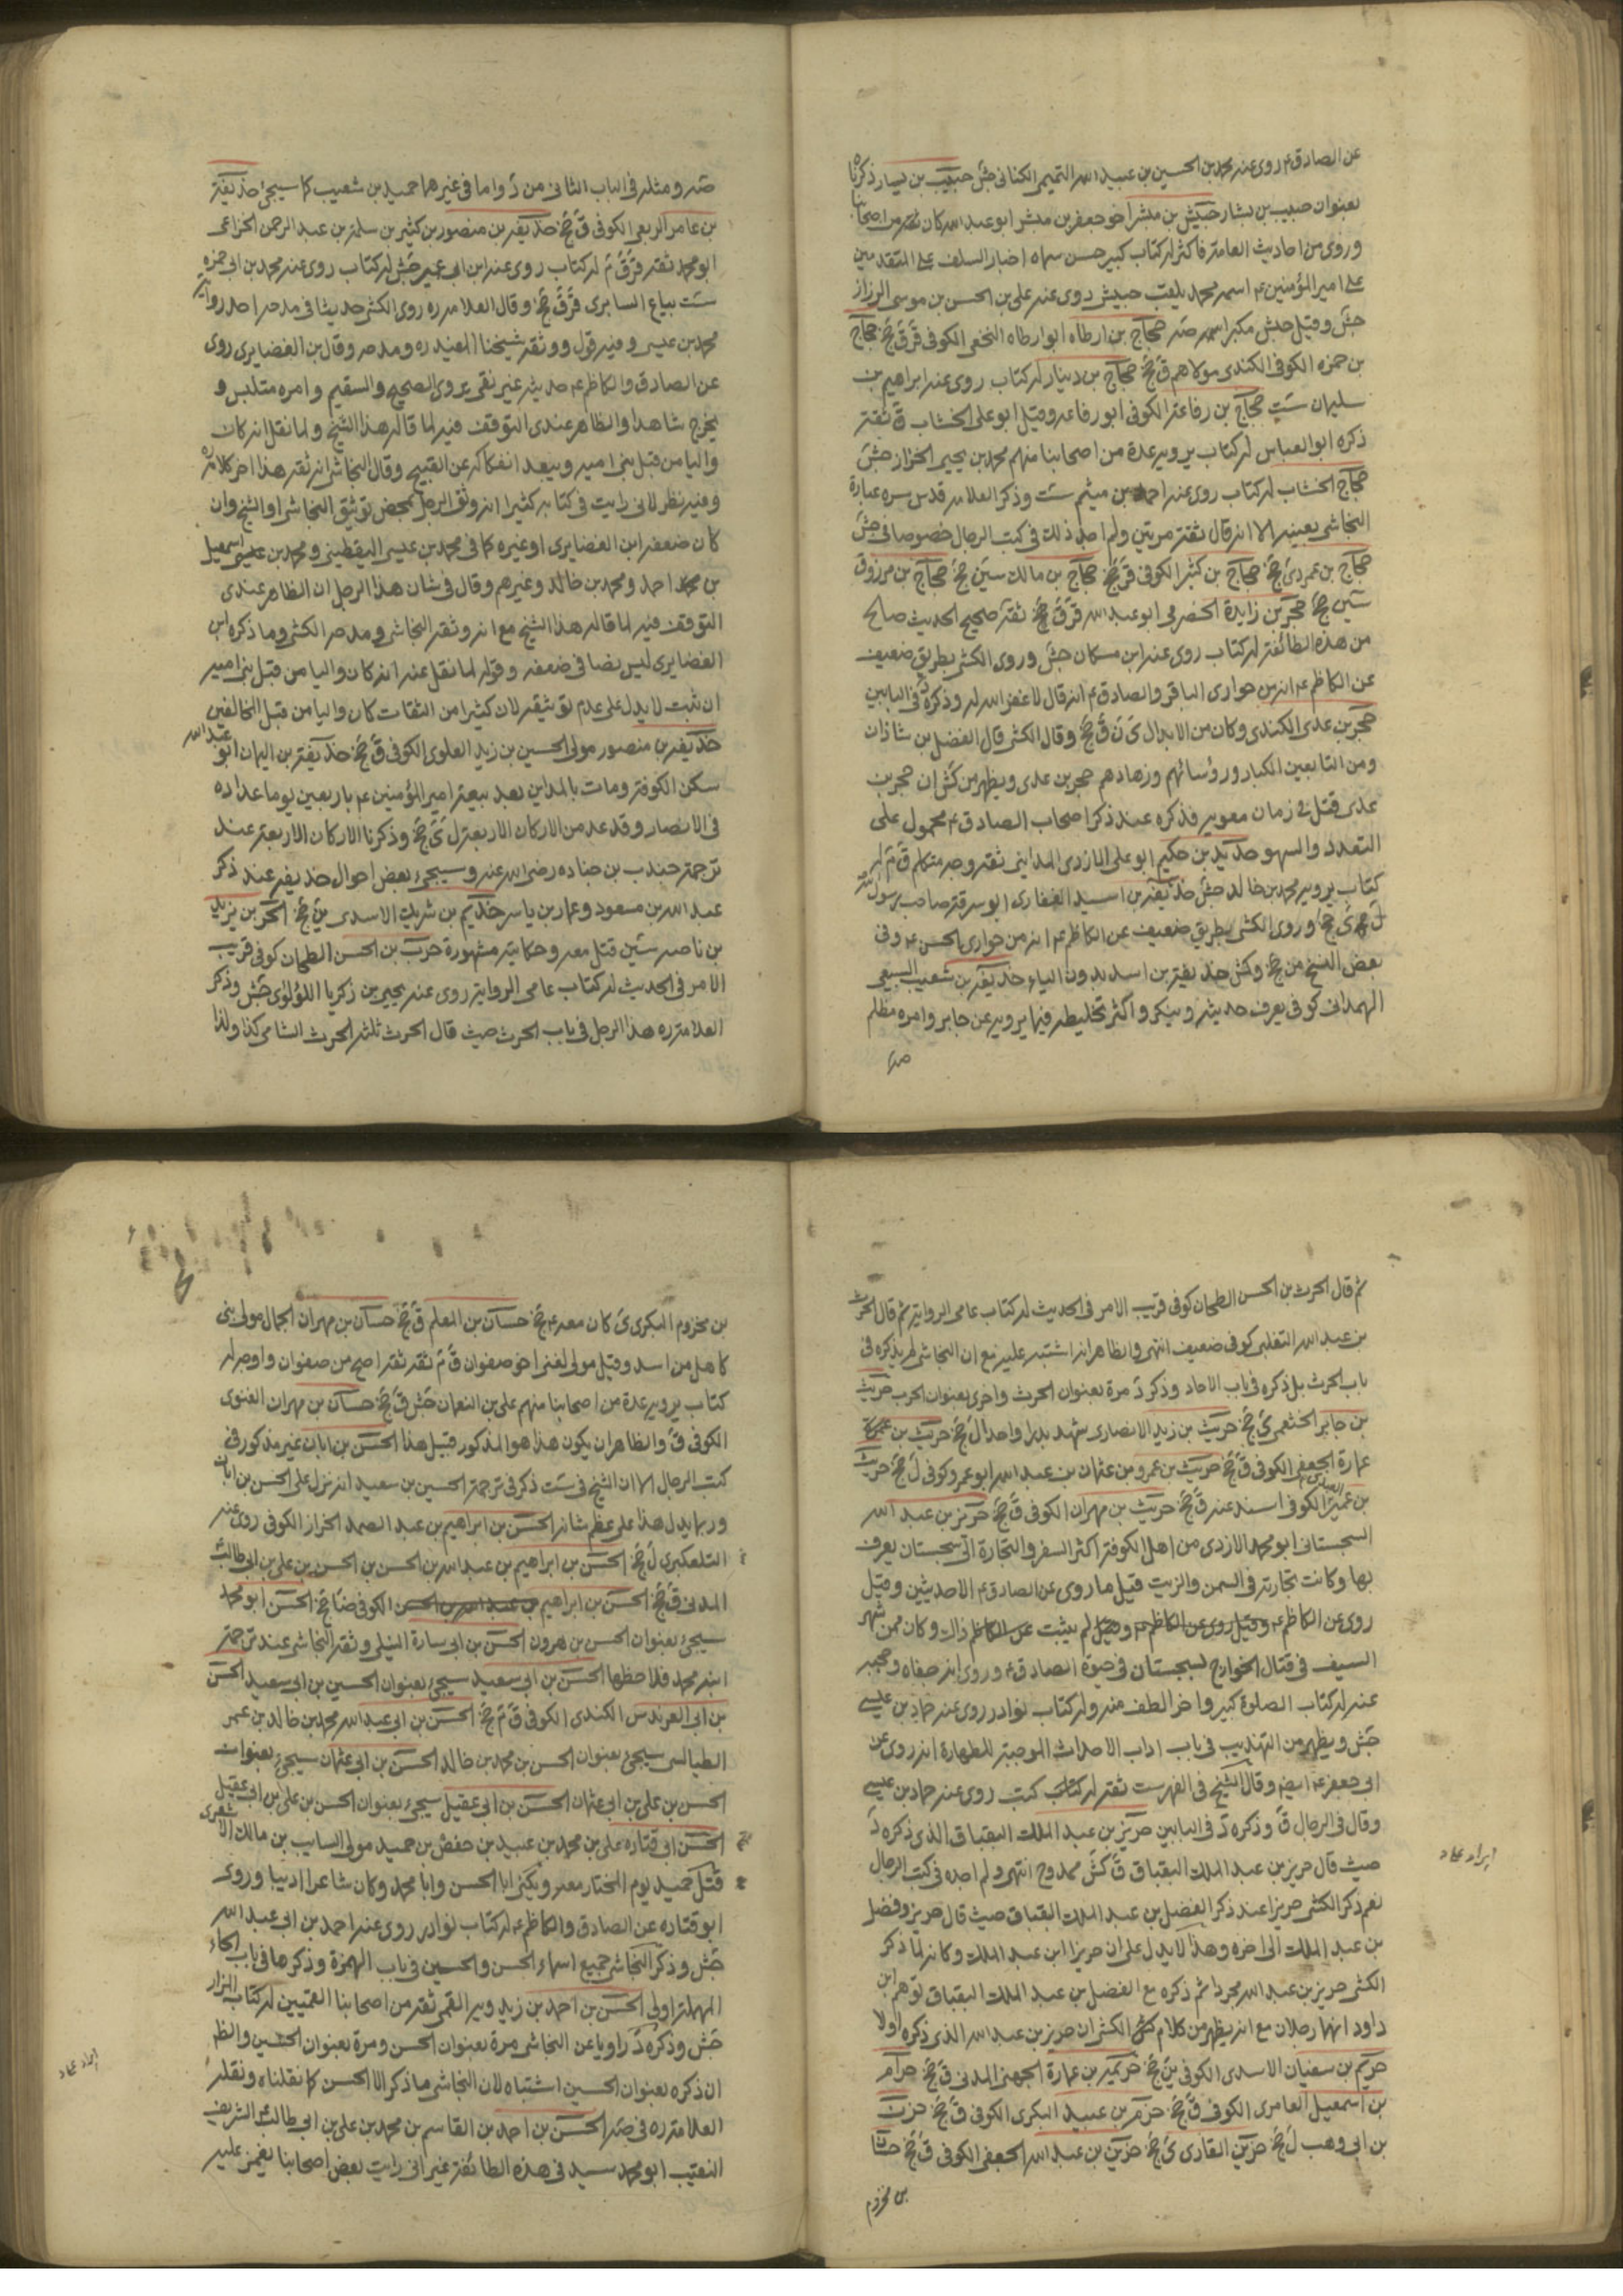 عن الصادق ع روى عنه محمد بن الحسين بن عبيد الله التميمى الكنانى جش حبيب بن يسار ذكرناه
بعنوان حبيب بن بشار حبيش بن مبشر اخو جعفر بن مبشر ابو عبد الله كان من اصحابنا
وروى من احاديث العامة فاكثر له كتاب كبير حسن سماه اخبار السلف على المتقدمين
على امير المؤمنين ع اسمه محمد يلقب حبيش روى عنه على بن الحسن بن موسى الرزاز
جش وقيل حبش مكبرا اسمه صه حجاج بن ارطاه ابو ارطاه النخعى الكوفى قر ق جخ حجاج
بن حمزه الكوفى الكندى مولاهم ق جخ حجاج بن دينار له كتاب روى عنه ابراهيم بن
سليمان ست حجاج بن رفاعة الكوفى ابو رفاعه وقيل ابو على الخشاب ق ثقة
ذكره ابو العباس له كتاب يرويه عدة من اصحابنا منهم محمد بن يحيى الخزاز جش
حجاج الخشاب له كتاب روى عنه احمد بن ميثم ست وذكر العلامه قدس سره عبارة
النجاشى بعينه الا انه قال ثقة مرتين ولم اجد ذلك فى كتب الرجال خصوصا فى جش
حجاج بن عمر دى جخ حجاج بن كثير الكوفى قر جخ حجاج بن مالك سين جخ حجاج بن مرزوق
سين جخ حجر بن زايدة الحضرمى ابو عبد الله قر ق جخ ثقة صحيح الحديث صالح
من هذه الطائفة له كتاب روى عنه ابن مسكان جش وروى الكشى بطريق ضعيف
عن الكاظم ع انه من حوارى الباقر والصادق ع انه قال لا غفر الله له وذكره د فى البابين
حجر بن عدى الكندى وكان من الابدال ى ن ق جخ وقال الكشى قال الفضل بن شاذان
ومن التابعين الكبار ورؤسائهم وزهادهم حجر بن عدى ويظهر من كش ان حجر بن
عدى قتل فى زمان معويه فذكره عند ذكر اصحاب الصادق ع محمول على
التعدد والسهو حديد بن حكيم ابو على الازدى المداينى ثقة وجه متكلم ق م له
كتاب يرويه محمد بن خالد جش حذيفة بن اسيد الغفارى ابو سرقة صاحب رسول الله
ل جخ ى جخ وروى الكشى بطريق ضعيف عن الكاظم ع انه من حوارى الحسن ع وفى
بعض النسخ من جخ وكش حذيفة بن اسد بدون الياء حذيفة بن شعيب السبيعى
الهمدانى كوفى يعرف حديثه وينكر واكثر تخليطه فيما يرويه عن جابر وامره مظلم
صه
صه ومثله فى الباب الثانى من د واما فى غيرهما حميد بن شعيب كما سيجئ حذيفة
بن عامر الربعى الكوفى ق جخ حذيفة بن منصور بن كثير بن سلمة بن عبد الرحمن الخزاعى
ابو محمد ثقة قر ق م له كتاب روى عنه ابن ابى عمير جش له كتاب روى عنه محمد بن ابى حمزه
ست بياع السابرى قر ق جخ وقال العلامه ره روى الكشى حديثا فى مدحه احد رواته
محمد بن عيسى وفيه قول ووثقه شيخنا المفيد ره ومدحه وقال بن الغضايرى روى
عن الصادق والكاظم ع حديثه غير نقى يروى الصحيح والسقيم وامره متلبس و
يخرج شاهدا والظاهر عندى التوقف فيه لما قاله هذا الشيخ ولما نقل انه كان
واليا من قبل بنى اميه ويبعد انفكاكه عن القبيح وقال النجاشى انه ثقه هذا اخر كلامه ره
وفيه نظر لانى رايت فى كتابه كثيرا انه وثق الرجل بمحض توثيق النجاشى او الشيخ وان
كان ضعفه ابن الغضايرى او غيره كما فى محمد بن عيسى اليقطينى ومحمد بن اسمعيل
بن محمد احمد ومحمد بن خالد وغيرهم وقال فى شان هذا الرجل ان الظاهر عندى
التوقف فيه لما قاله هذا الشيخ مع انه وثقه النجاشى ومدحه الكشى وما ذكره ابن
الغضايرى ليس نصا فى ضعفه وقوله لما نقل عنه انه كان واليا من قبل بنى اميه
ان ثبت لا يدل على عدم توثيقه لان كثيرا من الثقات كان واليا من قبل المخالفين
حذيفة بن منصور مولى الحسين بن زيد العلوى الكوفى ق جخ حذيفة بن اليمان ابو عبد الله
سكن الكوفة ومات بالمداين بعد بيعة امير المؤمنين ع باربعين يوما عداده
فى الانصار وقد عد من الاركان الاربعة ل ى جخ وذكرنا الاركان الاربعة عند
ترجمة جندب بن جناده رضى الله عنه وسيجئ بعض احوال حذيفه عند ذكر
عبد الله بن مسعود وعمار بن ياسر حذيم بن شريك الاسدى ين جخ الحر بن يزيد
بن ناصه سين قتل معه وحكايته مشهورة حرب بن الحسن الطحان كوفى قريب
الامر فى الحديث له كتاب عامى الرواية روى عنه يحيى بن زكريا اللؤلؤى جش وذكر
العلامة ره هذا الرجل فى باب الحرث حيث قال الحرث ثلثه الحرث الشامى كذا ولذا
ثم قال الحرث بن الحسن الطحان كوفى قريب الامر فى الحديث له كتاب عامى الرواية ثم قال الحرث
بن عبد الله التغلبى كوفى ضعيف انتهى والظاهر انه اشتبه عليه مع ان النجاشى لم يذكره فى
باب الحرث بل ذكره فى باب الاحاد وذكر د مرة بعنوان الحرث واخرى بعنوان الحرب حريث
بن جابر الخثعمى ى جخ حريث بن زيد الانصارى شهد بدرا واحدا ل جخ حريث بن
عمارة الجعفى الكوفى ق جخ حريث بن عمرو من عثمان بن عبد الله ابو عمرو كوفى ل جخ حريث
بن عمير الكوفى اسند عنه ق جخ حريث بن مهران الكوفى ق جخ حريز بن عبد الله
السجستانى ابو محمد الازدى من اهل الكوفة اكثر السفر والتجارة الى سجستان يعرف
بها وكانت تجارته فى السمن والزيت قيل ما روى عن الصادق ع الا حديثين وقيل
روى عن الكاظم ع وقيل روى عن الكاظم ع وقيل لم يثبت عن الكاظم ذاك وكان ممن شهر
السيف فى قتال الخوارج بسجستان فى حيوة الصادق ع وروى انه جفاه وحجبه
عنه له كتاب الصلوة كبير واخر الطف منه وله كتاب نوادر روى عنه حماد بن عيسى
جش ويظهر من التهذيب فى باب اداب الاحداث الموجبة للطهارة انه روى عن
ابى جعفر ع ايضا وقال الشيخ فى الفهرست ثقه له كتاب كتب روى عنه حماد بن عيسى
وقال فى الرجال ق وذكره د فى البابين حريز بن عبد الملك البقباق الذى ذكره د
حيث قال حريز بن عبد الملك البقباق ق كش ممدوح انتهى ولم اجده فى كتب الرجال
نعم ذكر الكشى حريزا عند ذكر الفضل بن عبد الملك البقباق حيث قال حريز وفضل
بن عبد الملك الى اخره وهذا لا يدل على ان حريزا ابن عبد الملك وكانه لما ذكر
الكشى حريز بن عبد الله مجردا ثم ذكره مع الفضل بن عبد الملك البقباق توهم ابن
داود انهما رجلان مع انه يظهر من كلام الكشى ان حريز بن عبد الله الذى ذكره اولا
حريم بن سفيان الاسدى الكوفى ين جخ بن عمارة الجهنى المدنى ق جخ حزام
بن اسمعيل العامرى الكوفى ق جخ حزم بن عبيد البكرى الكوفى ق جخ حزن
بن ابى وهب ل جخ حزين القارى ى جخ حزين بن عبد الله الجعفى الكوفى ق جخ حسان
بن مخزوم
ايراد عماد
بن مخزوم البكرى ى كان معه ع جخ حسان بن المعلم ق جخ حسان بن مهران الجمال مولى بنى
كاهل من اسد وقيل مولى لغنى اخو صفوان ق م ثقه ثقه اصح من صفوان واوجه له
كتاب يرويه عدة من اصحابنا منهم على بن النعمان جش ق جخ حسان بن مهران الغنوى
الكوفى ق والظاهر ان يكون هذا هو المذكور قبيل هذا الحسن بن ابان غير مذكور فى
كتب الرجال الا ان الشيخ فى ست ذكر فى ترجمة الحسين بن سعيد انه نزل على الحسن بن ابان
وربما يدل هذا على عظم شانه الحسن بن ابراهيم بن عبد الصمد الخزاز الكوفى روى عنه
التلعكبرى ل جخ الحسن بن ابراهيم بن عبد الله بن الحسن بن الحسن بن على بن ابى طالب
المدنى ق جخ الحسن بن ابراهيم بن عبد الله بن الحسن الكوفى ضا جخ الحسن ابو محمد
سيجئ بعنوان الحسن بن هرون الحسن بن ابى سارة النيلى وثقه النجاشى عند ترجمة
ابنه محمد فلاحظها الحسن بن ابى سعيد سيجئ بعنوان الحسين بن ابى سعيد الحسن
بن ابى العرندس الكندى الكوفى ق م جخ الحسن بن ابى عبد الله محمد بن خالد بن عمر
الطيالسى سيجئ بعنوان الحسن بن محمد بن خالد الحسن بن ابى عثمان سيجئ بعنوان
الحسن بن على بن ابى عثمان الحسن بن ابى عقيل سيجئ بعنوان الحسن بن على بن ابى عقيل
الحسن ابى قتاده على بن محمد بن عبيد بن حفص بن حميد مولى السايب بن مالك الاشعرى
قتل حميد يوم المختار معه ويكنى ابا الحسن وابا محمد وكان شاعرا اديبا وروى
ابو قتاده عن الصادق والكاظم ع له كتاب نوادر روى عنه احمد بن ابى عبد الله
جش وذكر النجاشى جميع اسماء الحسن والحسين فى باب الهمزة وذكرها فى باب الحاء
المهملة اولى الحسن بن احمد بن زيدويه القمى ثقه من اصحابنا القميين له كتاب المزار
جش وذكره د راويا عن النجاشى مرة بعنوان الحسن ومرة بعنوان الحسين والظ
ان ذكره بعنوان الحسين اشتباه لان النجاشى ما ذكر الا الحسن كما نقلناه ونقله
العلامة ره فى صه الحسن بن احمد بن القاسم بن محمد بن على بن ابى طالب الشريف
النقيب ابو محمد سيد فى هذه الطائفة غير انى رايت بعض اصحابنا يغمز عليه
ايراد عماد